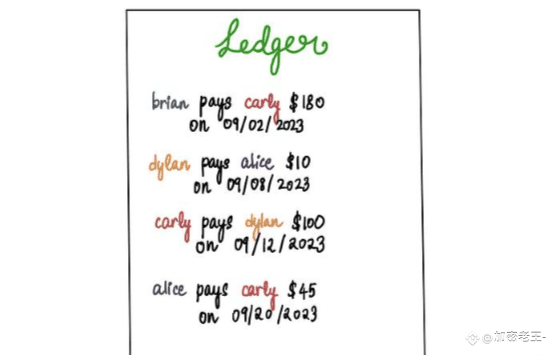 Ledger
brian pays carly $180
on 09/02/2023
dylan pays alice $10
on 09/08/2023
carly pays dylan $100
on 09/12/2023
alice pays carly $45
on 09/20/2023
@加密老王-